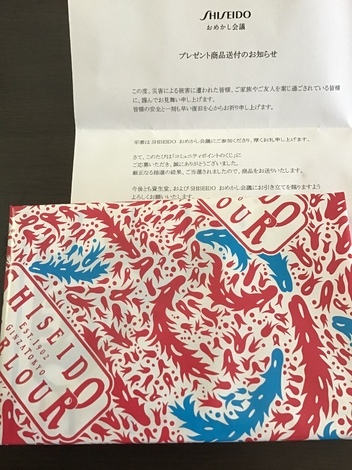 SHISEIDO
おめかし会議
プレゼント商品送付のお知らせ
この度、災害による被害に遭われた皆様、ご家族やご友人を案じ過ごされている皆様
に、謹んでお見舞い申し上げます。
皆様の安全と一刻も早い復旧を心からお祈り申し上げます。
平素は SHISEIDO おめかし会議にご参加くださり、厚くお礼申し上げます。
さて、このたびは「コミュニティポイントのくじ」に
ご応募いただき、誠にありがとうございました。
厳正なる抽選の結果、ご当選されましたので、商品をお送りいたします。
今後とも資生堂、および SHISEIDO おめかし会議にお引き立てを賜りますよう
よろしくお願いいたします。
SHISEIDO
LOUR
HISEIDO
EST.1902
GINZA TOKYO
RLOUR